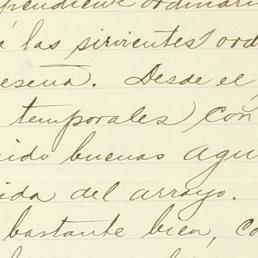 pendiente ordinari
á las sirvientes ord
eseña. Desde el
temporales) con
ido buenas agu
ida del arroyo.
bastante bien, co